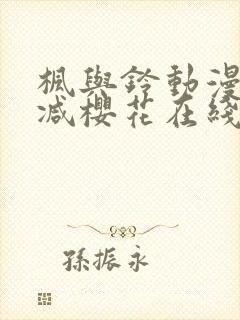 楓與鈴動漫
减櫻花在綫
孫振永